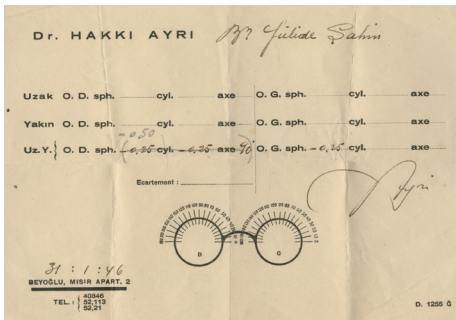 Dr. HAKKI AYRI Bn Jülide Şahin
Uzak O. D. sph. cyl. axe O. G. sph. cyl. axe
Yakın O. D. sph. cyl. axe O. G. sph. cyl. axe
-0,50
Uz.Y. } O. D. sph. (-0,25 cyl. -0,25 axe 90 O. G. sph. -0,25 cyl. axe
Ecartement :
Ayri
D G
31 : 1 : 46
BEYOĞLU, MISIR APART. 2
TEL. : { 40846
52,113
52,21
D. 1255 G